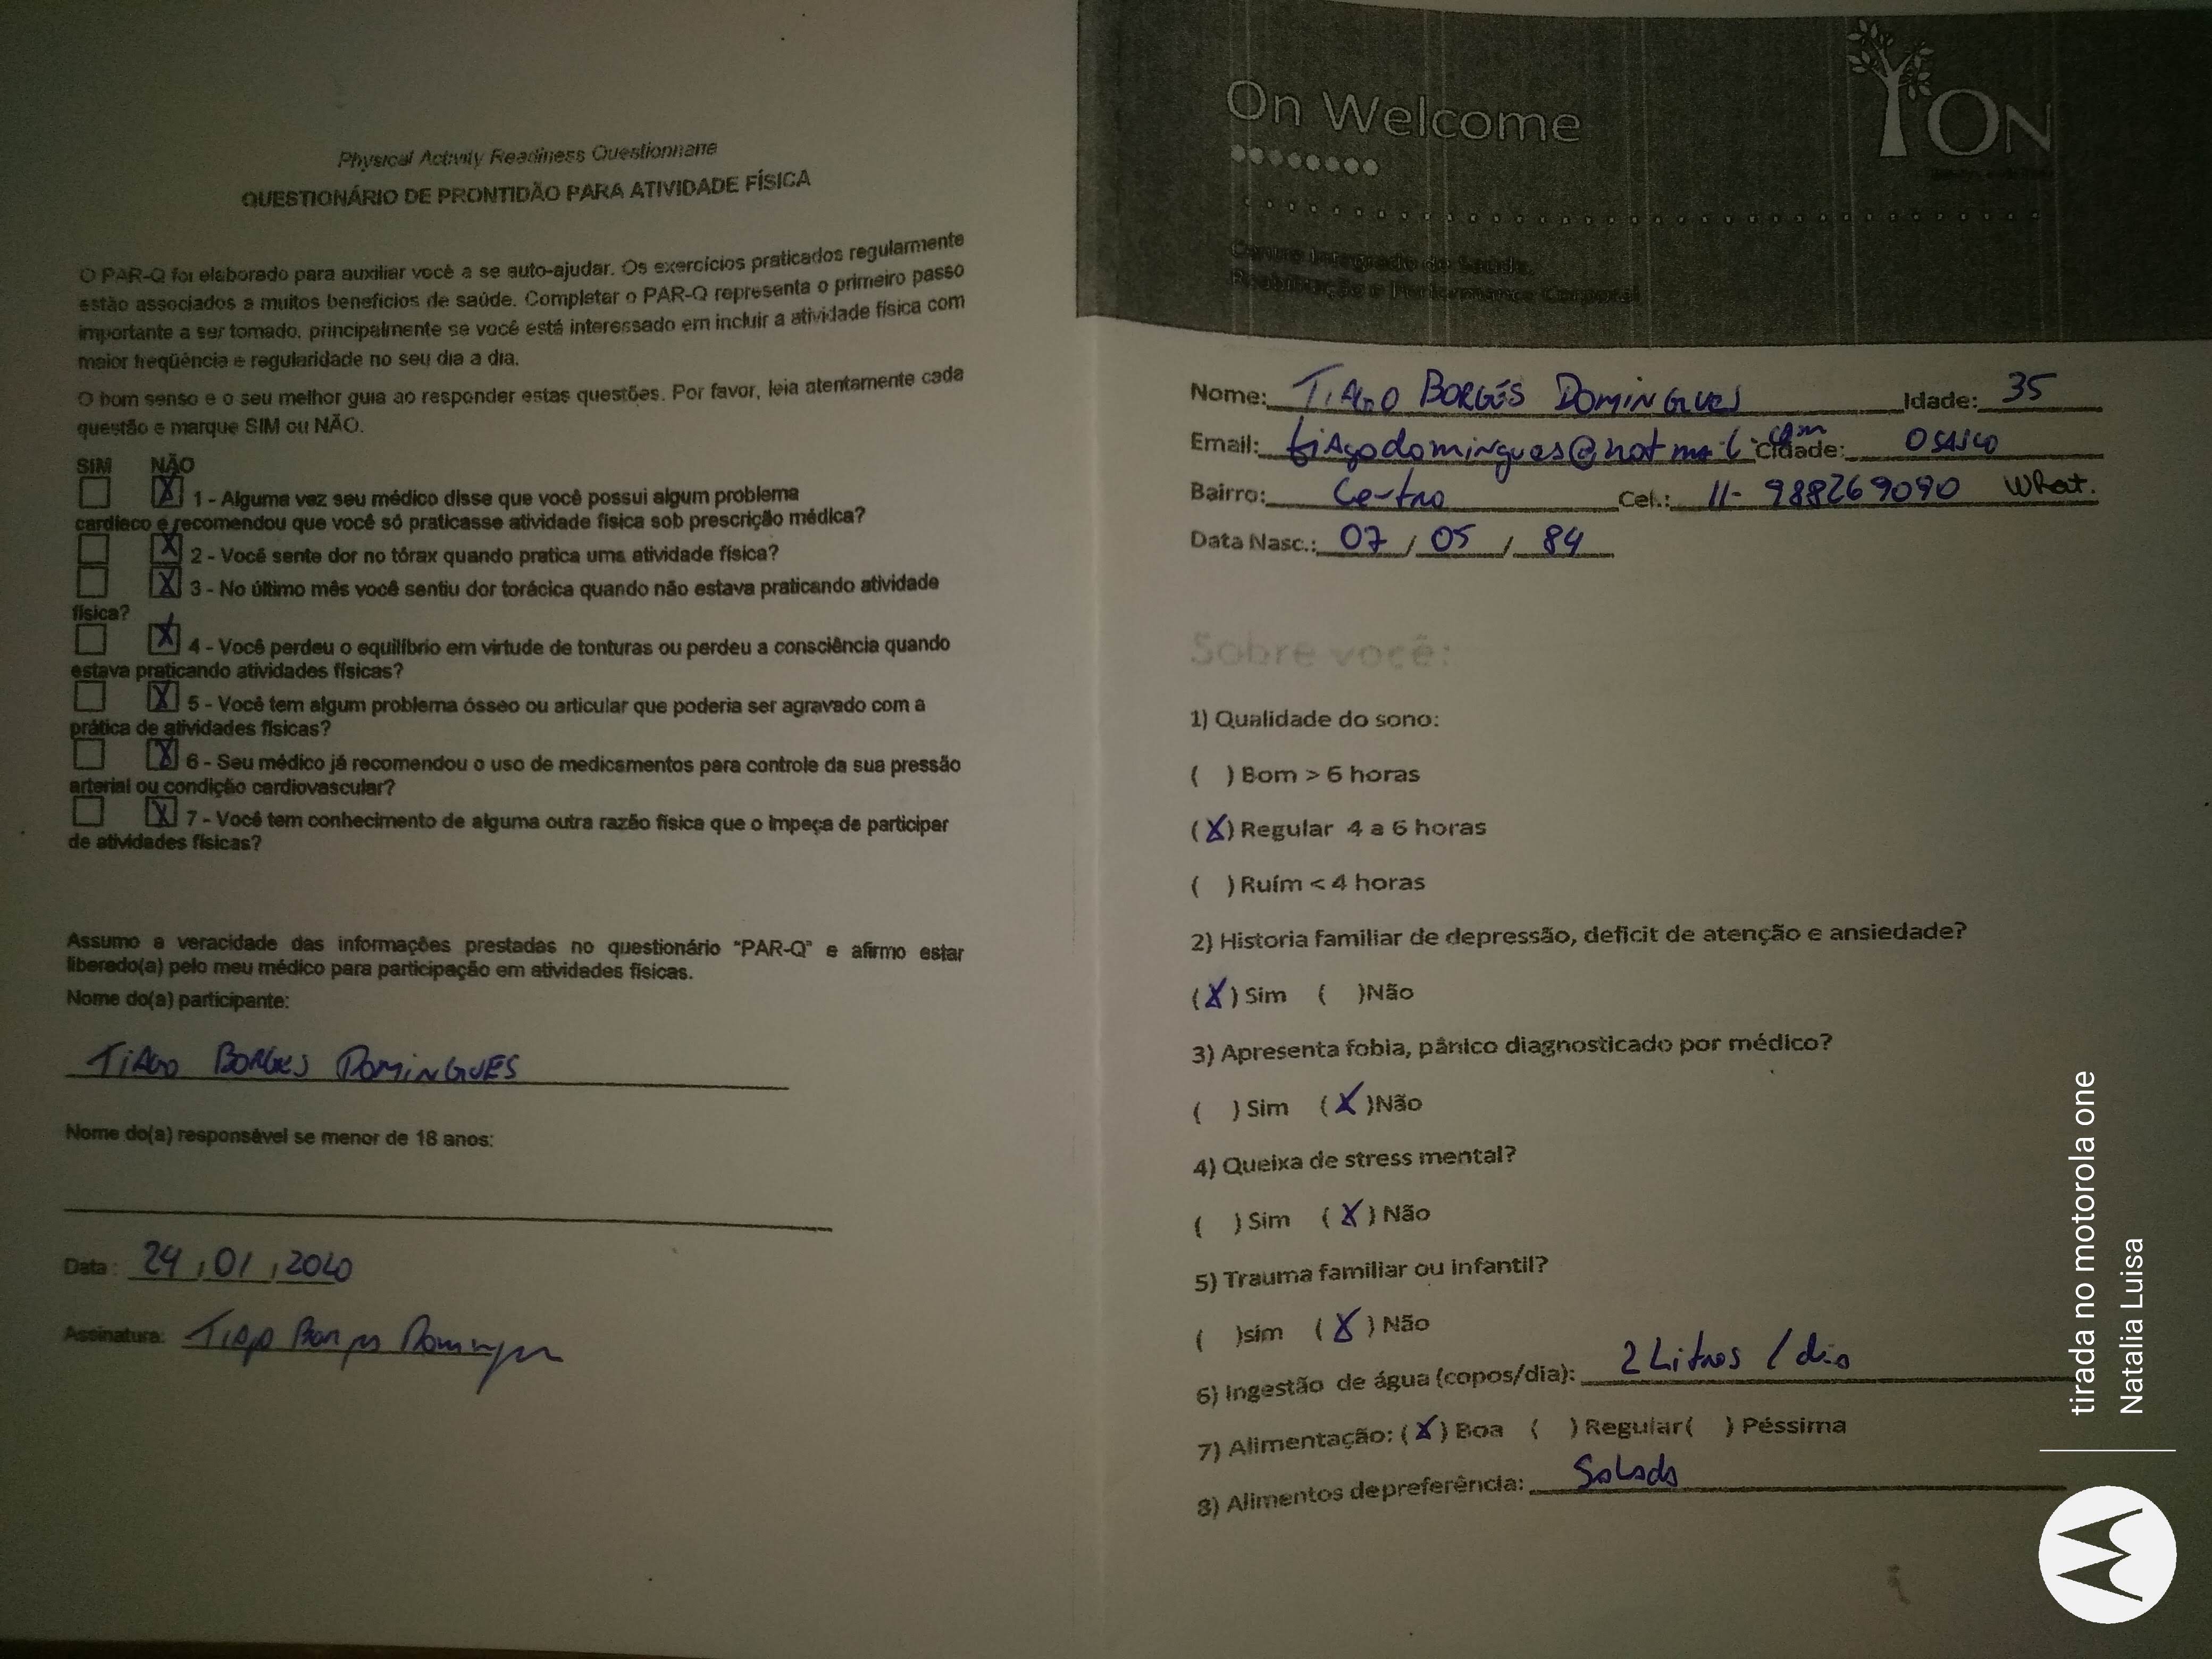 Physical Activity Readiness Questionnaire
QUESTIONÁRIO DE PRONTIDÃO PARA ATIVIDADE FÍSICA
O PAR-Q foi elaborado para auxiliar você a se auto-ajudar. Os exercícios praticados regularmente
estão associados a muitos benefícios de saúde. Completar o PAR-Q representa o primeiro passo
importante a ser tomado, principalmente se você está interessado em incluir a atividade física com
maior freqüência e regularidade no seu dia a dia.
O bom senso e o seu melhor guia ao responder estas questões. Por favor, leia atentamente cada
questão e marque SIM ou NÃO.
SIM NÃO
X 1 - Alguma vez seu médico disse que você possui algum problema
cardíaco e recomendou que você só praticasse atividade física sob prescrição médica?
X 2 - Você sente dor no tórax quando pratica uma atividade física?
X 3 - No último mês você sentiu dor torácica quando não estava praticando atividade
física?
X 4 - Você perdeu o equilíbrio em virtude de tonturas ou perdeu a consciência quando
estava praticando atividades físicas?
X 5 - Você tem algum problema ósseo ou articular que poderia ser agravado com a
prática de atividades físicas?
X 6 - Seu médico já recomendou o uso de medicamentos para controle da sua pressão
arterial ou condição cardiovascular?
X 7 - Você tem conhecimento de alguma outra razão física que o impeça de participar
de atividades físicas?
Assumo a veracidade das informações prestadas no questionário "PAR-Q" e afirmo estar
liberado(a) pelo meu médico para participação em atividades físicas.
Nome do(a) participante:
TIAGO BORGES DOMINGUES
Nome do(a) responsável se menor de 18 anos:
Data: 24, 01, 2020
Assinatura: Tiago Borges Domingues
On Welcome
ON
Centro Integrado de Saúde,
Reabilitação e Performance Corporal
Nome: TIAGO BORGES DOMINGUES Idade: 35
Email: tiagodomingues@hotmail.com Cidade: OSASCO
Bairro: Centro Cel.: 11- 988269090 What.
Data Nasc.: 07 / 05 / 84
Sobre você:
1) Qualidade do sono:
( ) Bom > 6 horas
(X) Regular 4 a 6 horas
( ) Ruím < 4 horas
2) Historia familiar de depressão, deficit de atenção e ansiedade?
(X) Sim ( )Não
3) Apresenta fobia, pânico diagnosticado por médico?
( ) Sim (X)Não
4) Queixa de stress mental?
( ) Sim (X) Não
5) Trauma familiar ou infantil?
( )sim (X) Não
6) Ingestão de água (copos/dia): 2 Litros / dia
7) Alimentação: (X) Boa ( ) Regular( ) Péssima
8) Alimentos de preferência: Salada
tirada no motorola one
Natalia Luisa